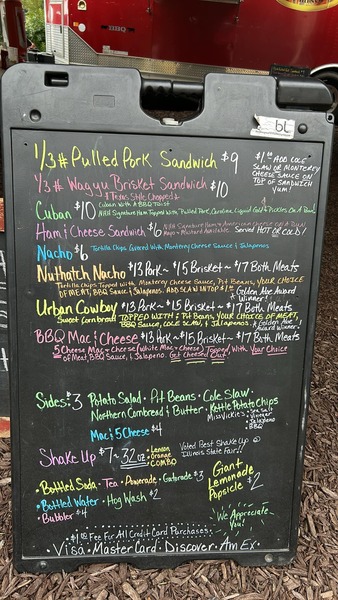 1/3# Pulled Pork Sandwich $9
$1.00 ADD COLE
SLAW OR MONTEREY
CHEESE SAUCE ON
TOP OF SANDWICH
YUM!
1/3# Wagyu Brisket Sandwich $10
Texas Style Chopped
Cuban $10 Cuban With A BBQ Twist
NHH Signature Ham Topped With Pulled Pork, Carolina Liquid Gold & Pickles On A Bond
Ham & Cheese Sandwich $6 NHH Signature Ham & American Cheese
Mayo & Mustard Available Served HOT OR COLD!
Nacho $6 Tortilla Chips Covered With Monterey Cheese Sauce & Jalapenos
Nuthatch Nacho $13 Pork~ $15 Brisket~ $17 Both Meats
Tortilla Chips Topped With Monterey Cheese Sauce, Pit Beans, YOUR CHOICE
OF MEAT, BBQ Sauce & Jalapenos. ADD SLAW ON TOP $1 Golden Abe Award
Winner!
Urban Cowboy $13 Pork~ $15 Brisket~ $17 Both Meats
Sweet Cornbread TOPPED WITH: Pit Beans, YOUR CHOICE OF MEAT,
BBQ SAUCE, COLE SLAW, & Jalapenos. Golden Abe
Award Winner!
BBQ Mac & Cheese $13 Pork~ $15 Brisket~ $17 Both Meats
5 Cheese Mac & Cheese (White Mac & Cheese) Topped With Your Choice
of Meat, BBQ Sauce, & Jalapeno. Get Cheesed Out!
Sides: $3 Potato Salad • Pit Beans • Cole Slaw •
Northern Cornbread & Butter • Kettle Potato Chips
Miss Vickie's • Sea Salt
• Vinegar
• Jalapeno
• BBQ
Mac & 5 Cheese $4
Shake Up $7~ 32 oz • Lemon
• Orange
• COMBO
Voted Best Shake Up @
Illinois State Fair!!
• Bottled Soda • Tea • Powerade • Gatorade $3
• Bottled Water • Hog Wash $2
• Bubbler $4
Giant
Lemonade
Popsicle $2
We Appreciate
You!
$1.00 Fee For All Credit Card Purchases
• Visa • Master Card • Discover • Am Ex •